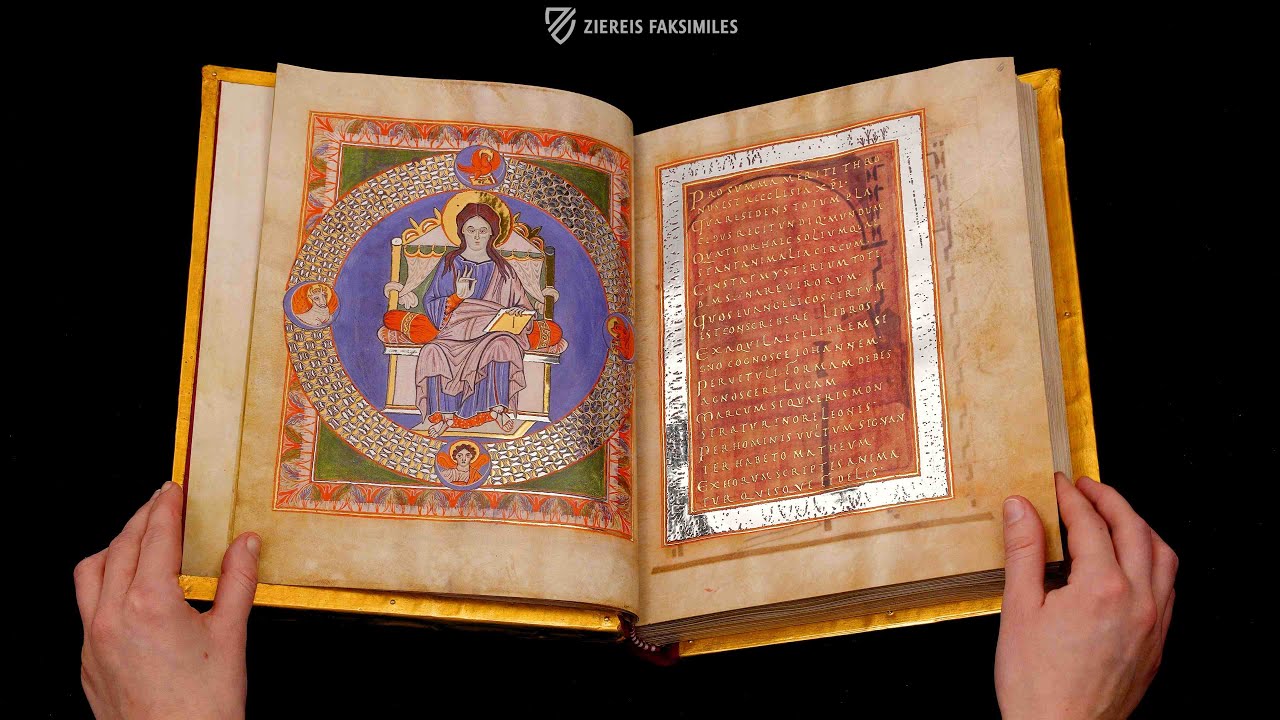 ZIEREIS FAKSIMILES
6
PRO SUMMA MERITI THRO
NUS EST AECCLESIA XPI·
QUA RESIDENS TOTUM PLA
CIDUS REGIT UNDIQ· MUNDUM
QUATUOR HAEC SOLIUMQ·
STANT ANIMALIA CIRCUM
CONSTAT MYSTERIUM TOTI
DEM SIGNARE UIRORUM·
QUOS EUANGELICOS CERTUM
EST CONSCRIBERE LIBROS
EX AQUILAE CELEBREM SI
GNO COGNOSCE IOHANNEM·
PER UITULI FORMAM DEBES
AGNOSCERE LUCAM
MARCUM SI QUAERIS MON
STRATUR IN ORE LEONIS
PER HOMINIS UULTUM SIGNAN
TER HABETO MATHEUM
EX HORUM SCRIPTIS ANIMA
TUR QUISQUE FIDELIS·